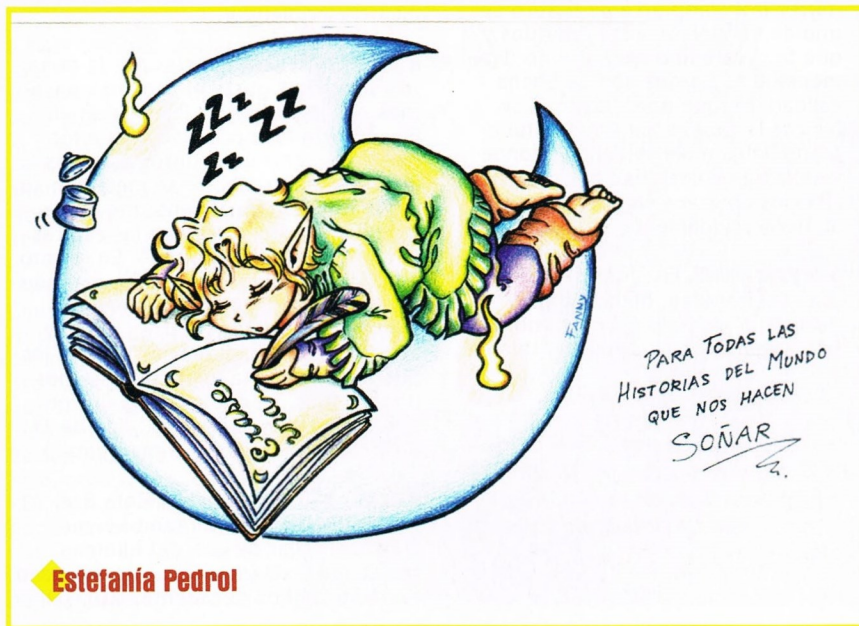 ZZz ZZ
Zz
Erase
una
FANNY
PARA TODAS LAS
HISTORIAS DEL MUNDO
QUE NOS HACEN
SOÑAR
Estefanía Pedrol